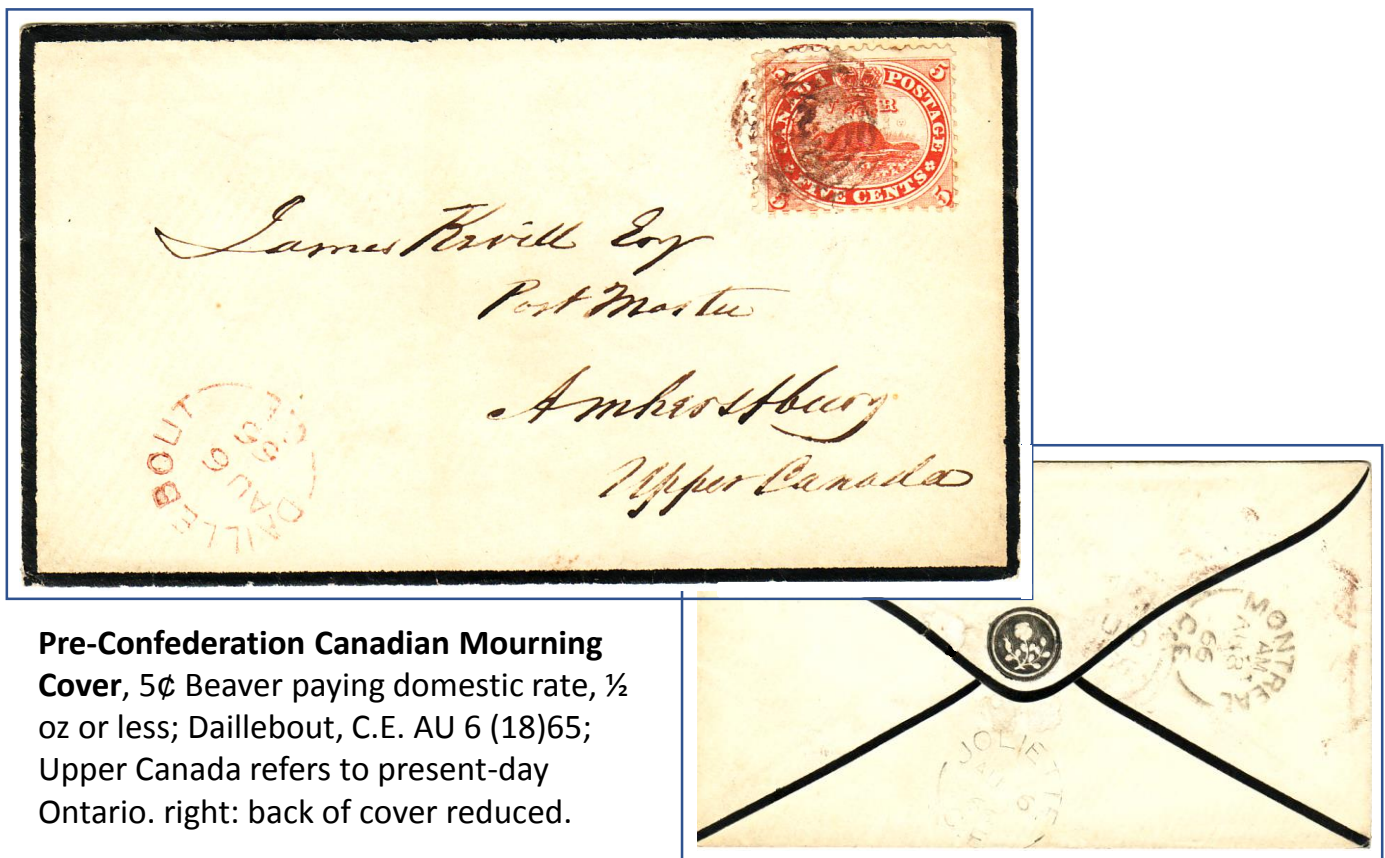 5 CANADA POSTAGE 5
FIVE CENTS
James Kevill Esq
Post Master
Amherstburg
Upper Canada
DAILLEBOUT
AU 6
Pre-Confederation Canadian Mourning
Cover, 5¢ Beaver paying domestic rate, ½
oz or less; Daillebout, C.E. AU 6 (18)65;
Upper Canada refers to present-day
Ontario. right: back of cover reduced.
MONTREAL
AM
66
C.E
JOLIETTE